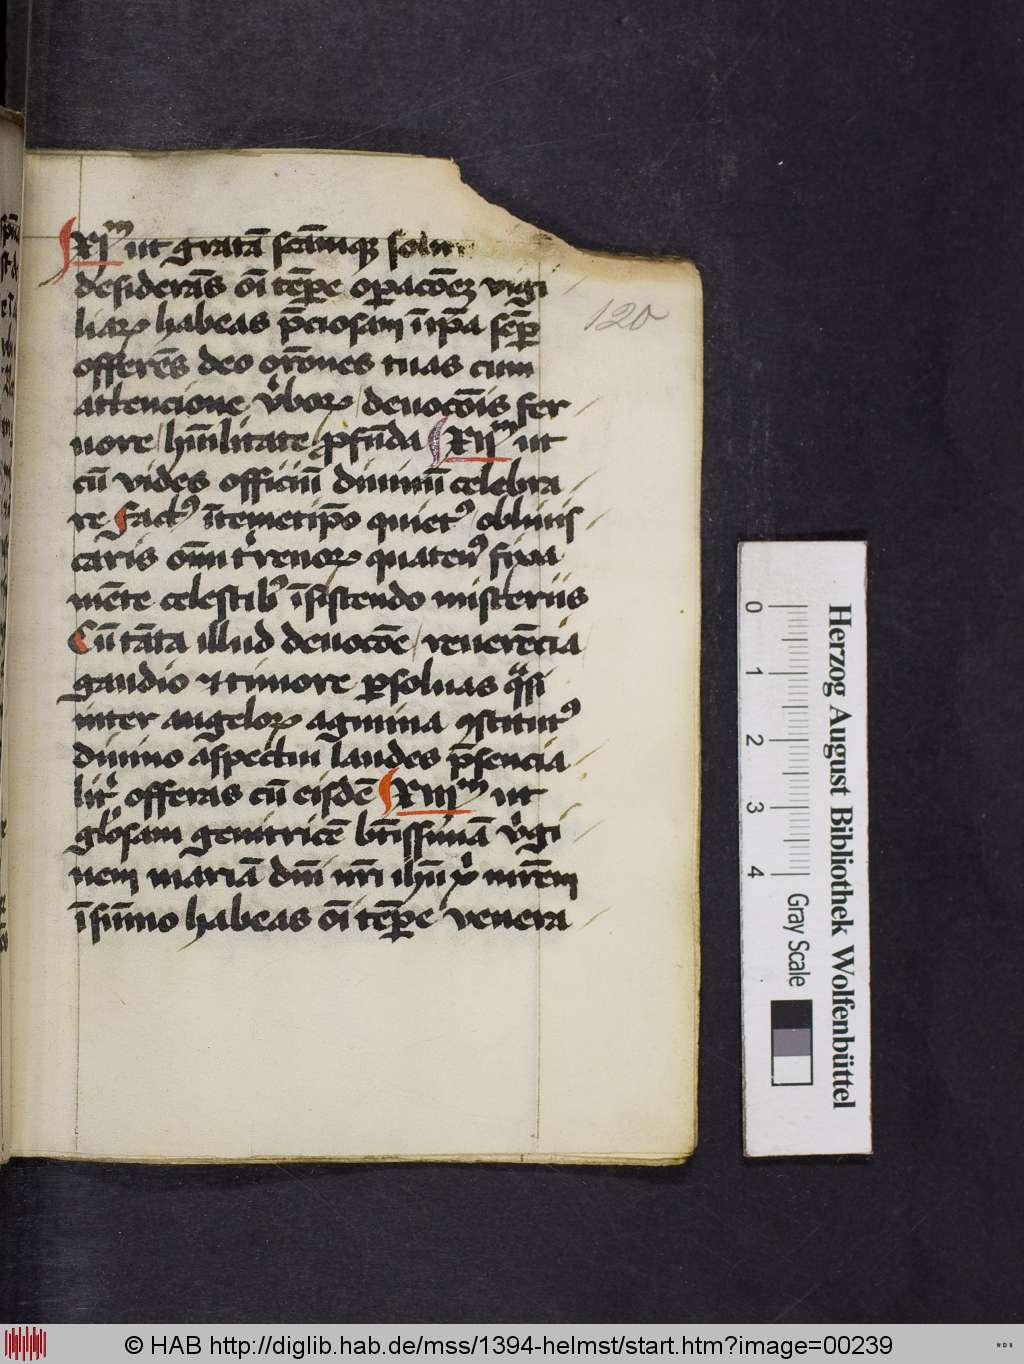 XIᵐ ut gratā scāmqꝫ
desiderās oī tēꝑe oꝑacōeꝫ vigi
liaꝝ habeas p̄ciosam ī ip̄a seꝑ
offerēs deo or̄ones tuas cum
attencione v̓boꝝ / deuocōis fer
uore / hūilitate ꝓfūda XIIᵐ ut
cū vides officiū diuinū celebra
re Factꝰ ī temetip̄o quietꝰ obliuis
caris oīm t̓renoꝝ quatenꝰ fixa
mēte celestibꝰ īsistendo misteriis
Cū tāta illud deuocōe / reuerēcia
gaudio ⁊ timore ꝑsoluas qᵃsi
inter angeloꝝ agmina ꝯstitutꝰ
diuino aspectui laudes p̄sencia
lit̓ offeras cū eisdē XIIIᵐ ut
gl̓osam genitricē bt̄issimā v̓gi
nem mariā dn̄i nr̄i ihū xp̄i mr̄em
ī sūmo habeas oī tēꝑe venera
120
Herzog August Bibliothek Wolfenbüttel
0 1 2 3 4
Gray Scale
© HAB http://diglib.hab.de/mss/1394-helmst/start.htm?image=00239